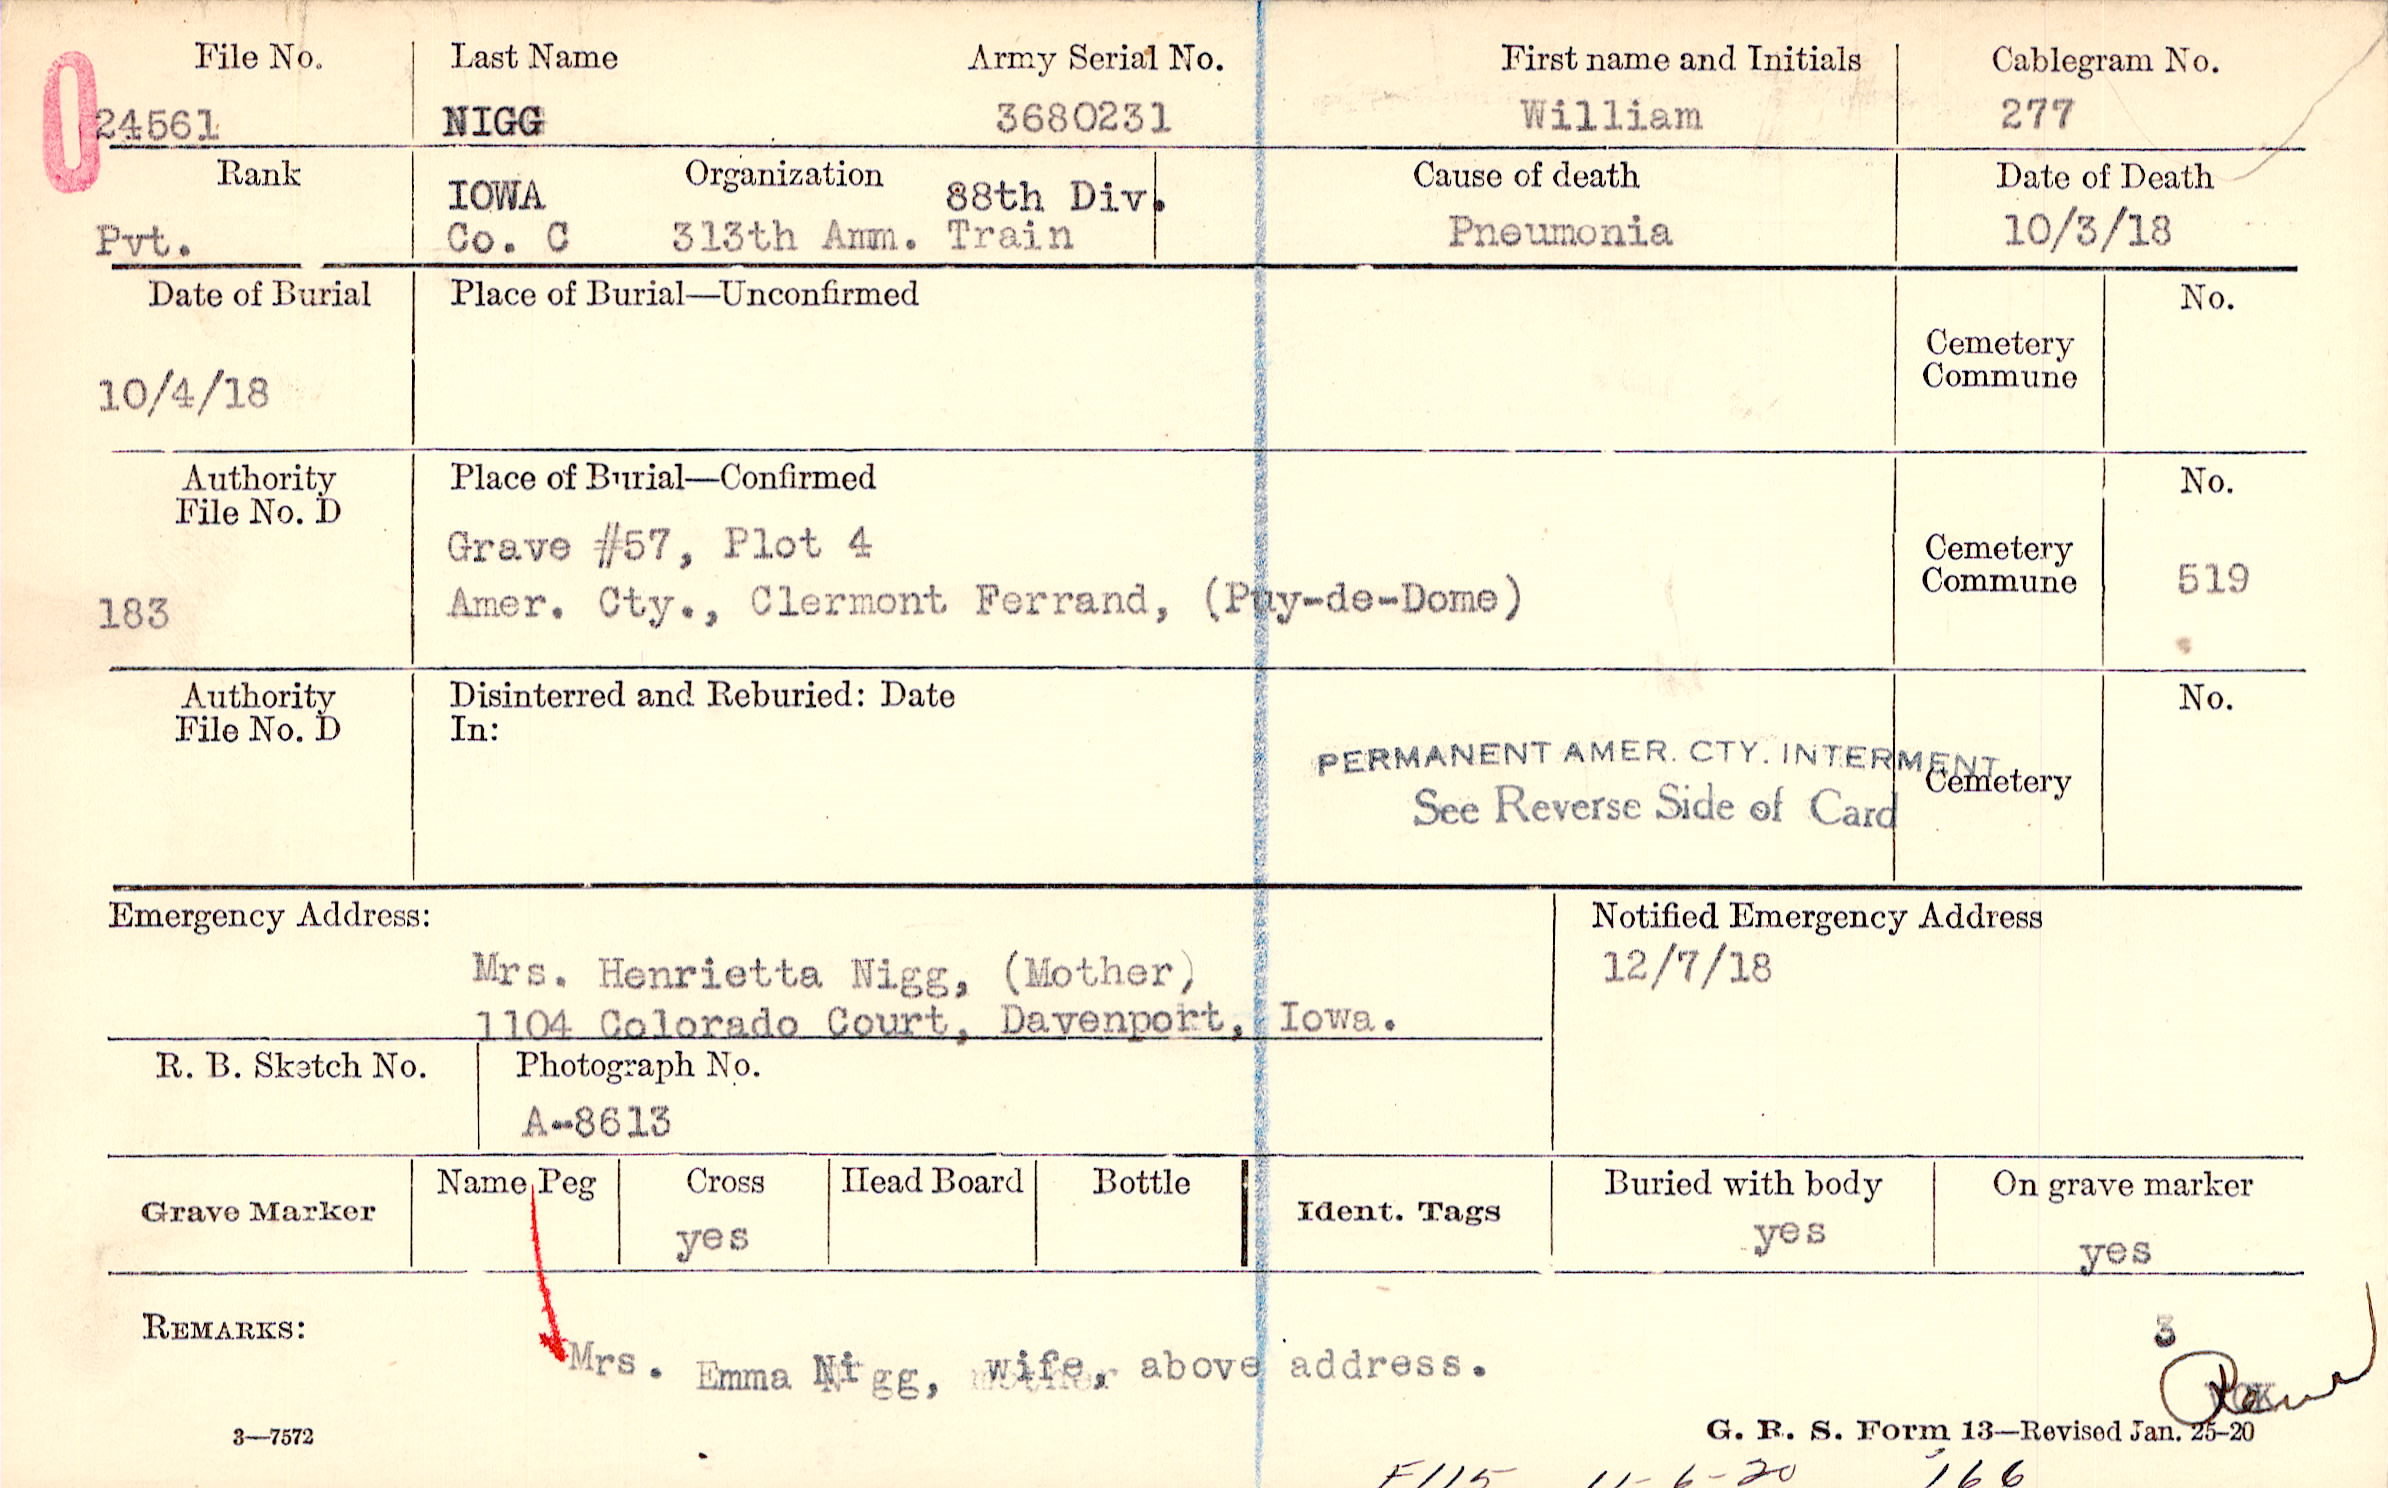 File No. Last Name Army Serial No. First name and Initials Cablegram No.
24561 NIGG 3680231 William 277
Rank Organization Cause of death Date of Death
IOWA 88th Div.
Pvt. Co. C 313th Amm. Train Pneumonia 10/3/18
Date of Burial Place of Burial—Unconfirmed No.
Cemetery
Commune
10/4/18
Authority Place of Burial—Confirmed No.
File No. D
Grave #57, Plot 4 Cemetery
Commune 519
183 Amer. Cty., Clermont Ferrand, (Puy-de-Dome)
Authority Disinterred and Reburied: Date No.
File No. D In:
PERMANENT AMER. CTY. INTERMENT
Cemetery
See Reverse Side of Card
Emergency Address: Notified Emergency Address
Mrs. Henrietta Nigg, (Mother) 12/7/18
1104 Colorado Court, Davenport, Iowa.
R. B. Sketch No. Photograph No.
A-8613
Name Peg Cross Head Board Bottle Buried with body On grave marker
Grave Marker Ident. Tags
yes yes yes
REMARKS: 3
Mrs. Emma Nigg, wife, above address.
3—7572 G. R. S. Form 13—Revised Jan. 25-20
F115 11-6-20 166